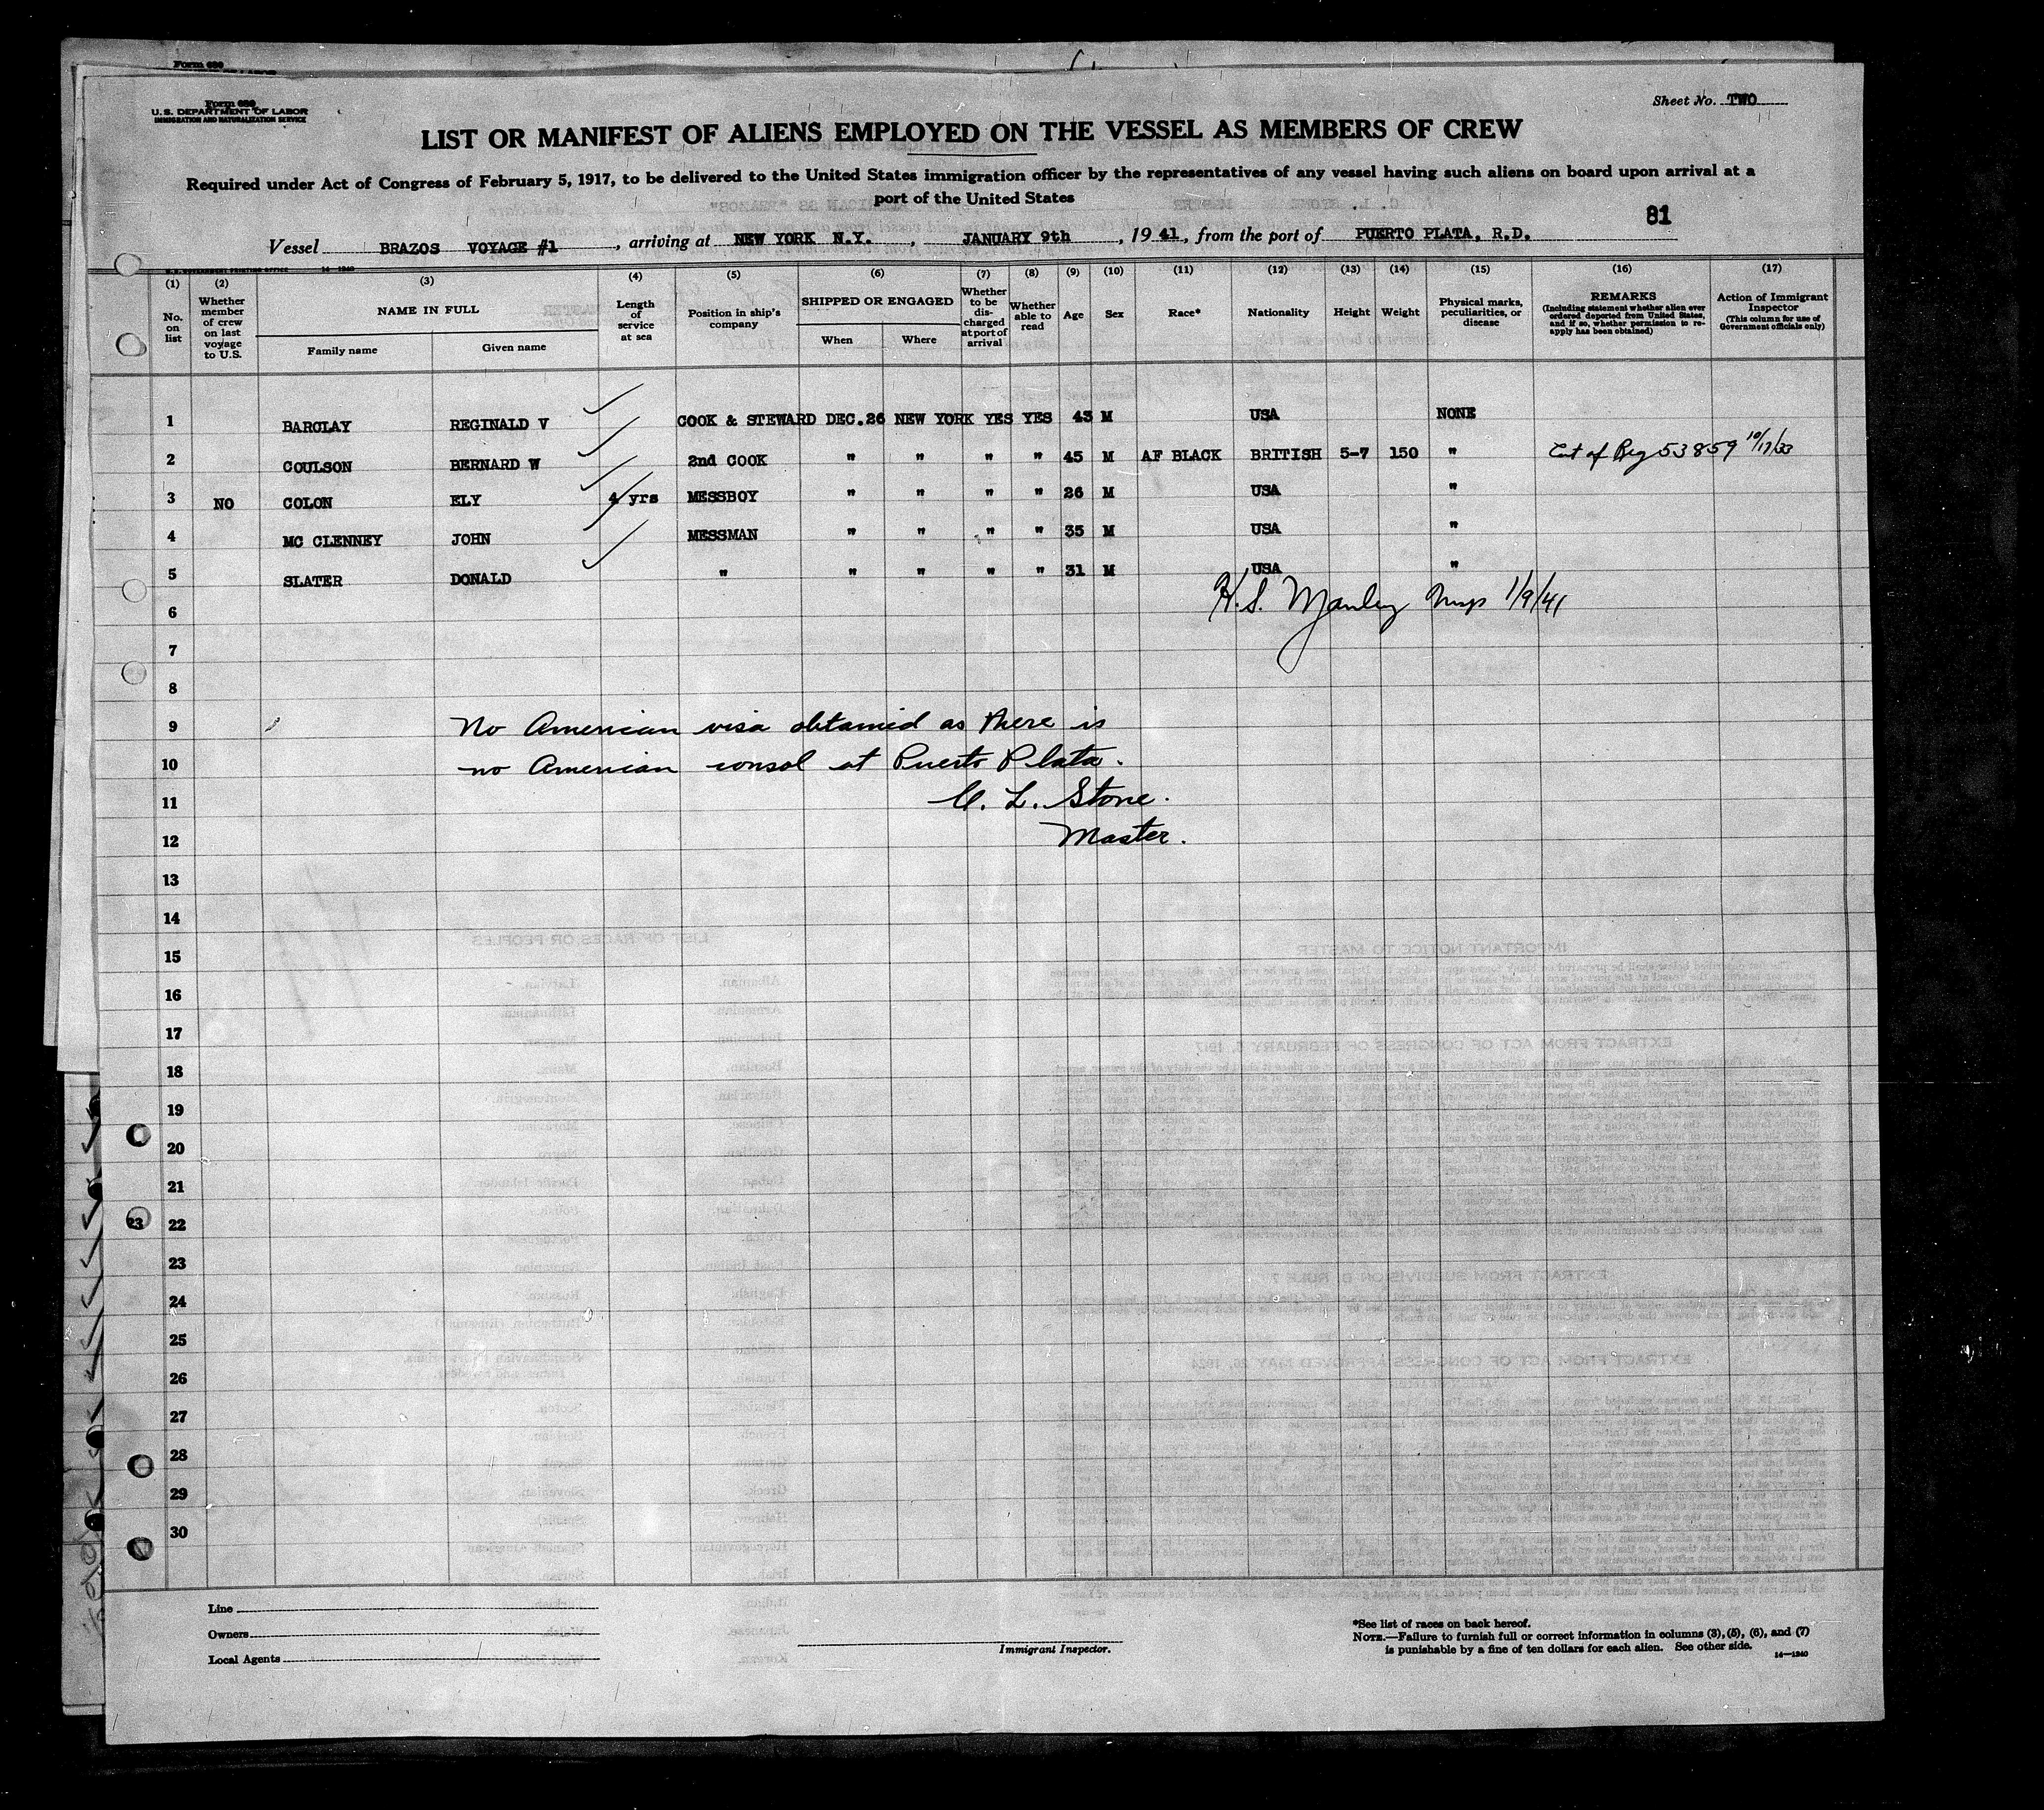 Form 680
Form 680
U.S. DEPARTMENT OF LABOR
IMMIGRATION AND NATURALIZATION SERVICE
Sheet No. TWO
LIST OR MANIFEST OF ALIENS EMPLOYED ON THE VESSEL AS MEMBERS OF CREW
Required under Act of Congress of February 5, 1917, to be delivered to the United States immigration officer by the representatives of any vessel having such aliens on board upon arrival at a
port of the United States
81
Vessel BRAZOS VOYAGE #1, arriving at NEW YORK N.Y., JANUARY 9th, 1941, from the port of PUERTO PLATA, R.D.
U. S. GOVERNMENT PRINTING OFFICE 14—1240
(1) (2) (3) (4) (5) (6) (7) (8) (9) (10) (11) (12) (13) (14) (15) (16) (17)
No. on list
Whether member of crew on last voyage to U.S.
NAME IN FULL
Family name
Given name
Length of service at sea
Position in ship's company
SHIPPED OR ENGAGED
When
Where
Whether to be discharged at port of arrival
Whether able to read
Age
Sex
Race*
Nationality
Height
Weight
Physical marks, peculiarities, or disease
REMARKS
(Including statement whether alien ever ordered deported from United States, and if so, whether permission to reapply has been obtained)
Action of Immigrant Inspector
(This column for use of Government officials only)
1 BARCLAY REGINALD V COOK & STEWARD DEC.26 NEW YORK YES YES 43 M USA NONE
2 COULSON BERNARD W 2nd COOK " " " " 45 M AF BLACK BRITISH 5-7 150 " Cert of Reg 53859 10/17/33
3 NO COLON ELY 4 yrs MESSBOY " " " " 26 M USA "
4 MC CLENNEY JOHN MESSMAN " " " " 35 M USA "
5 SLATER DONALD " " " " " 31 M USA "
6 H.S. Manley Insp 1/9/41
7
8
9 No American visa obtained as there is
10 no American consul at Puerto Plata.
11 C. L. Stone.
12 Master.
13
14
15
16
17
18
19
20
21
23 22
23
24
25
26
27
28
29
30
Line
Owners
Local Agents
Immigrant Inspector.
*See list of races on back hereof.
NOTE.—Failure to furnish full or correct information in columns (3), (5), (6), and (7)
is punishable by a fine of ten dollars for each alien. See other side.
14—1240